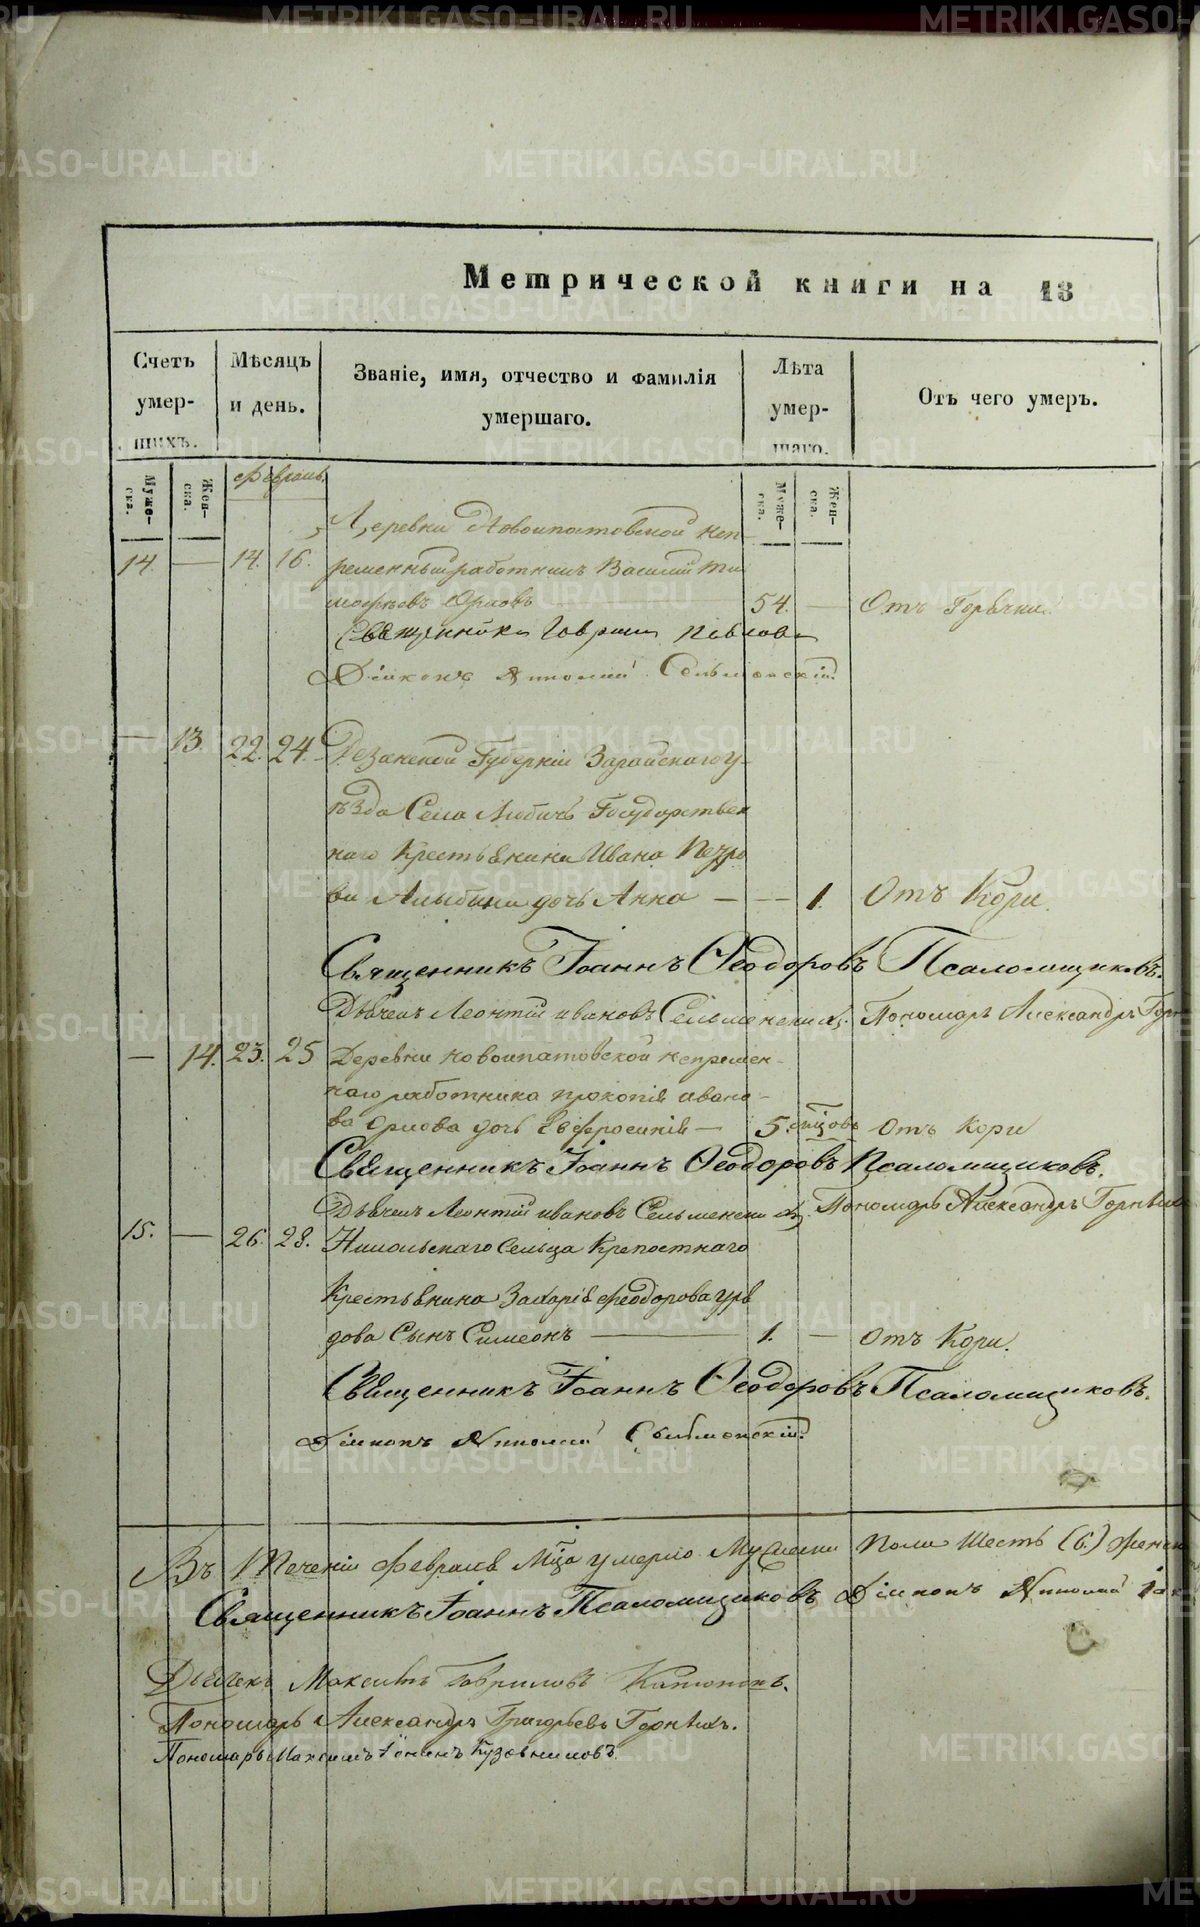 METRIKI.GASO-URAL.RU
Метрической книги на 18
Счетъ умер-шихъ.
Мѣсяцъ и день.
Званіе, имя, отчество и фамилія умершаго.
Лѣта умер-шаго.
Отъ чего умеръ.
Муже-ска.
Жен-ска.
Февраль.
Муже-ска.
Жен-ска.
Деревни Новоипатовской неп-
14. — 14. 16. ременный работникъ Василий Ти
мофѣевъ Орловъ — 54. — Отъ Горячки.
Священникъ Гавриил Павлов
Діаконъ Сельменскій.
— 13. 22. 24. Резанской Губерніи Зарайскаго у-
ѣзда Села Любичь Государствен
наго Крестьянина Ивана Петро
ва дочь Анна — — 1. Отъ Кори.
Священникъ Іоаннъ Ѳеодоровъ Псаломщиковъ.
Дьячекъ Леонтій Ивановъ Сельменскій. Пономарь Александръ
— 14. 23. 25 Деревни Новоипатовской непремен-
наго работника Прокопія Ивано-
ва Орлова дочь Евфросинія — 5. Отъ Кори
Священникъ Іоаннъ Ѳеодоровъ Псаломщиковъ.
Дьячекъ Леонтій Ивановъ Сельменскій Пономарь Александръ
15. — 26. 28. Никольскаго Сельца Крепостнаго
Крестьянина Захарія Феодорова
дова Сынъ Симеонъ — 1. — Отъ Кори.
Священникъ Іоаннъ Ѳеодоровъ Псаломщиковъ.
Діаконъ Сельменскій.
Въ Теченіи Февраля Мца умерло Мужеска Пола Шесть (6.) Женск
Священникъ Іоаннъ Псаломщиковъ Діаконъ
Дьячекъ Максимъ Гавриловъ
Пономарь Александръ Григорьевъ Горныхъ.
Пономарь Кузовниковъ.